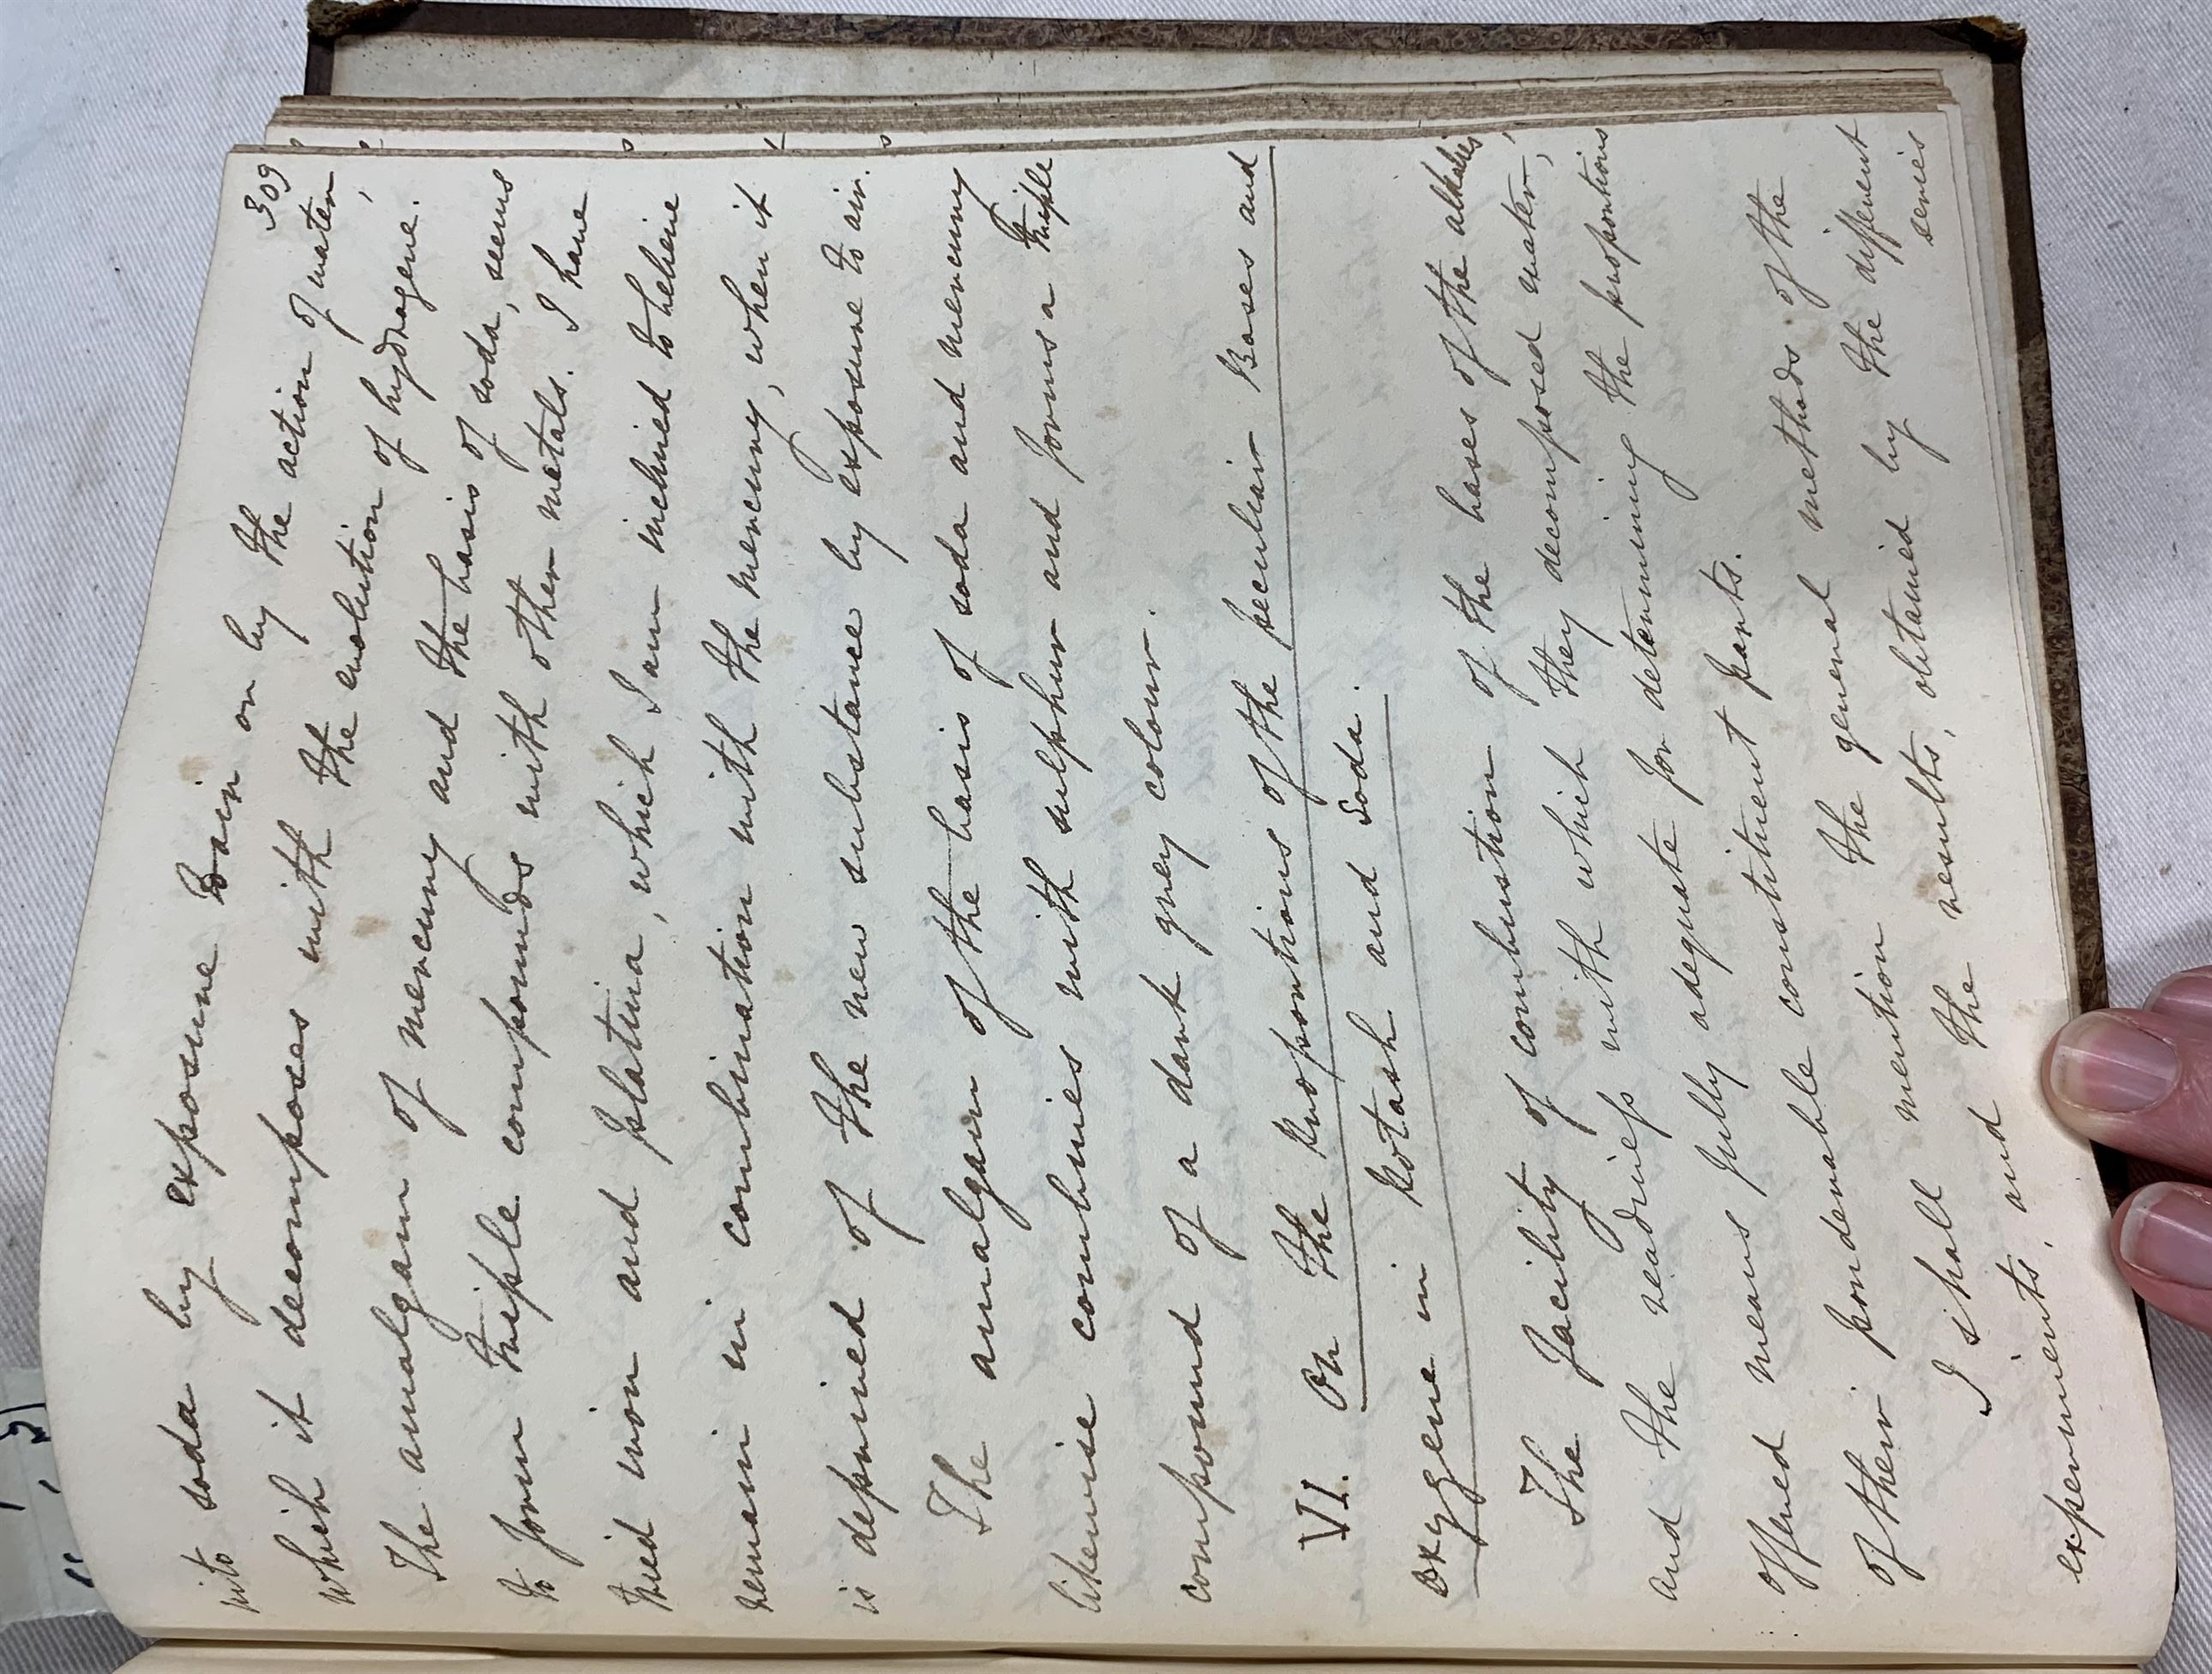 309
into soda by exposure to air or by the action of water,
which it decomposes with the evolution of hydrogene.
The amalgam of mercury and the basis of soda, seems
to form triple compounds with other metals. I have
tried iron and platina, which I am inclined to believe
remain in combination with the mercury, when it
is deprived of the new substance by exposure to air.
The amalgam of the basis of soda and mercury
likewise combines with sulphur and forms a triple
compound of a dark grey colour.
VI. On the proportions of the peculiar Bases and
oxygene in potash and soda.
The facility of combustion of the bases of the alkalies,
and the readiness with which they decomposed water,
offered means fully adequate for determining the proportions
of their ponderable constituent parts.
I shall mention the general methods of the
experiments, and the results, obtained by the different
series